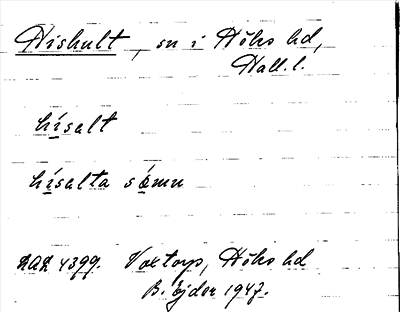 Hishult, sn i Höks hd,
Hall. l.
hísalt
hísalta sámn
LAL 4399. Voxtorp, Höks hd
B. Ejder 1947.